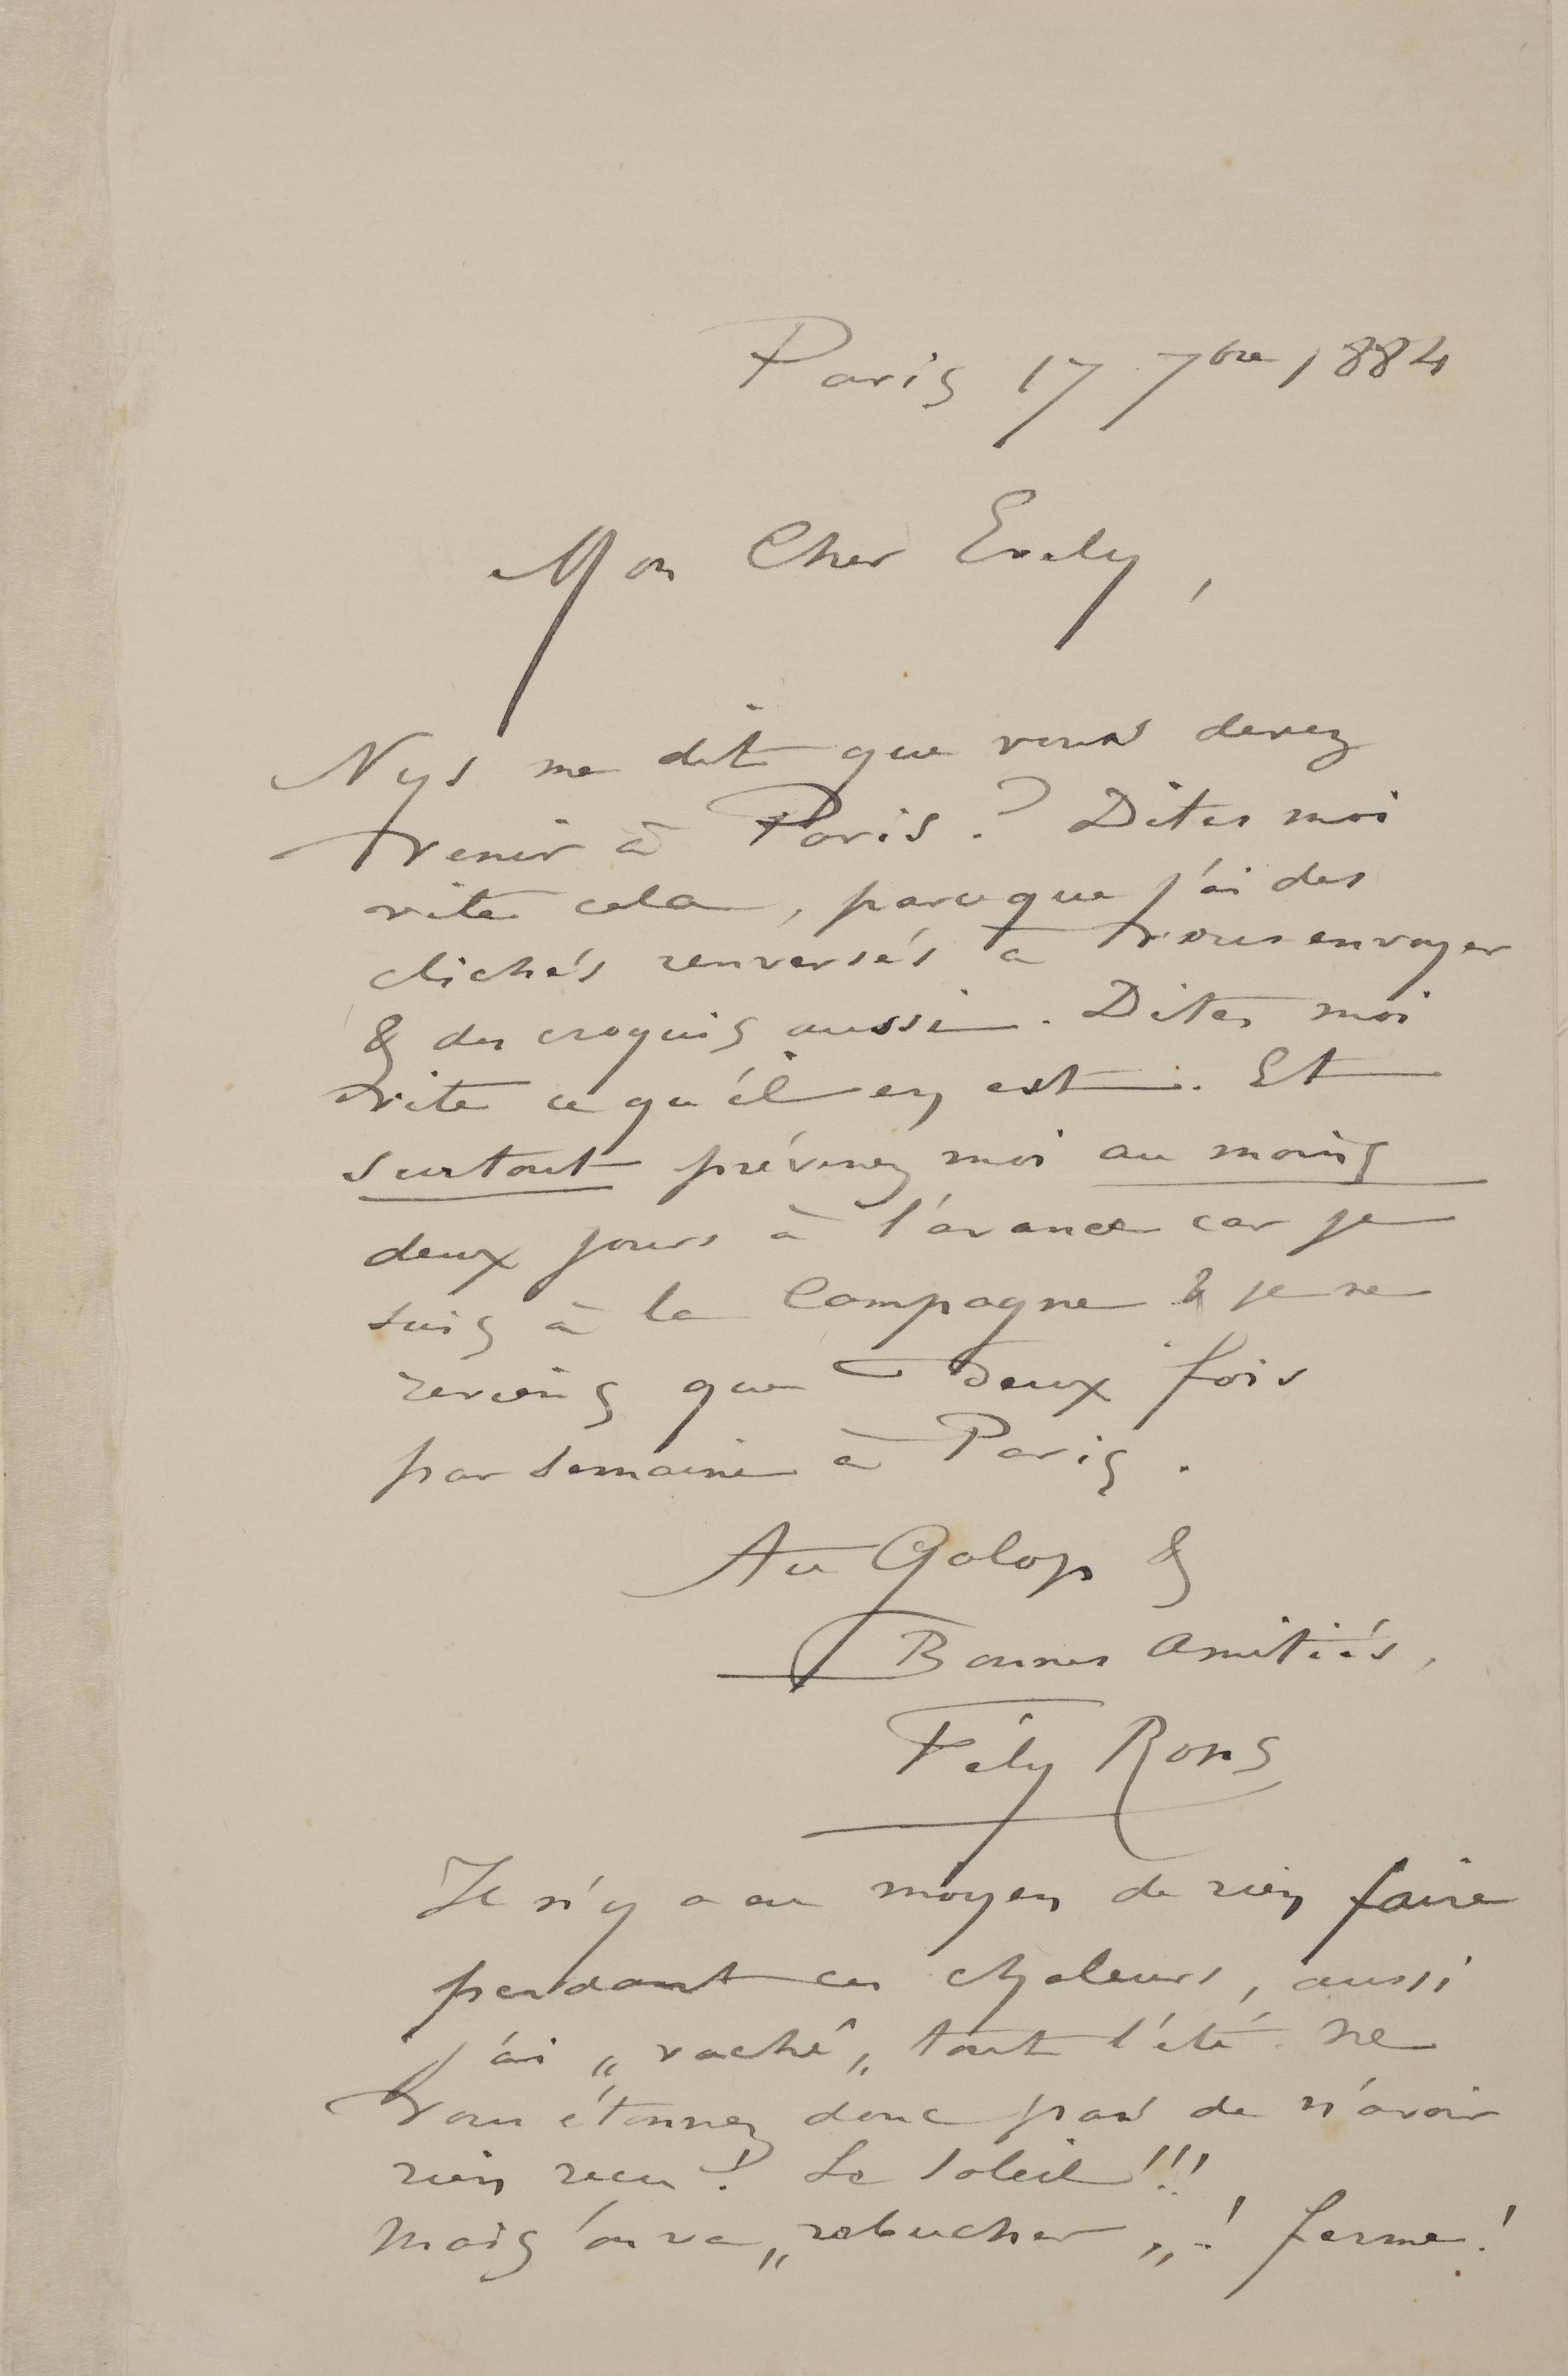 Paris 17 7bre 1884
Mon Cher Evely,
Nys me dit que vous devez
venir à Paris ? Dites moi
vite cela, parceque j'ai des
clichés renversés à vous envoyer
& des croquis aussi. Dites moi
vite ce qu'il en est. Et
surtout prévenez moi au moins
deux jours à l'avance car je
suis à la Campagne & je ne
reviens que Deux fois
par semaine à Paris.
Au Galop &
Bonnes Amitiés,
Fély Rops
Il n'y a eu moyen de rien faire
pendant ces chaleurs, aussi
j'ai „vaché„ tout l'été. Ne
vous étonnez donc pas de n'avoir
rien reçu ! Le Soleil !!!
Mais on va „rebucher„ ! ferme !